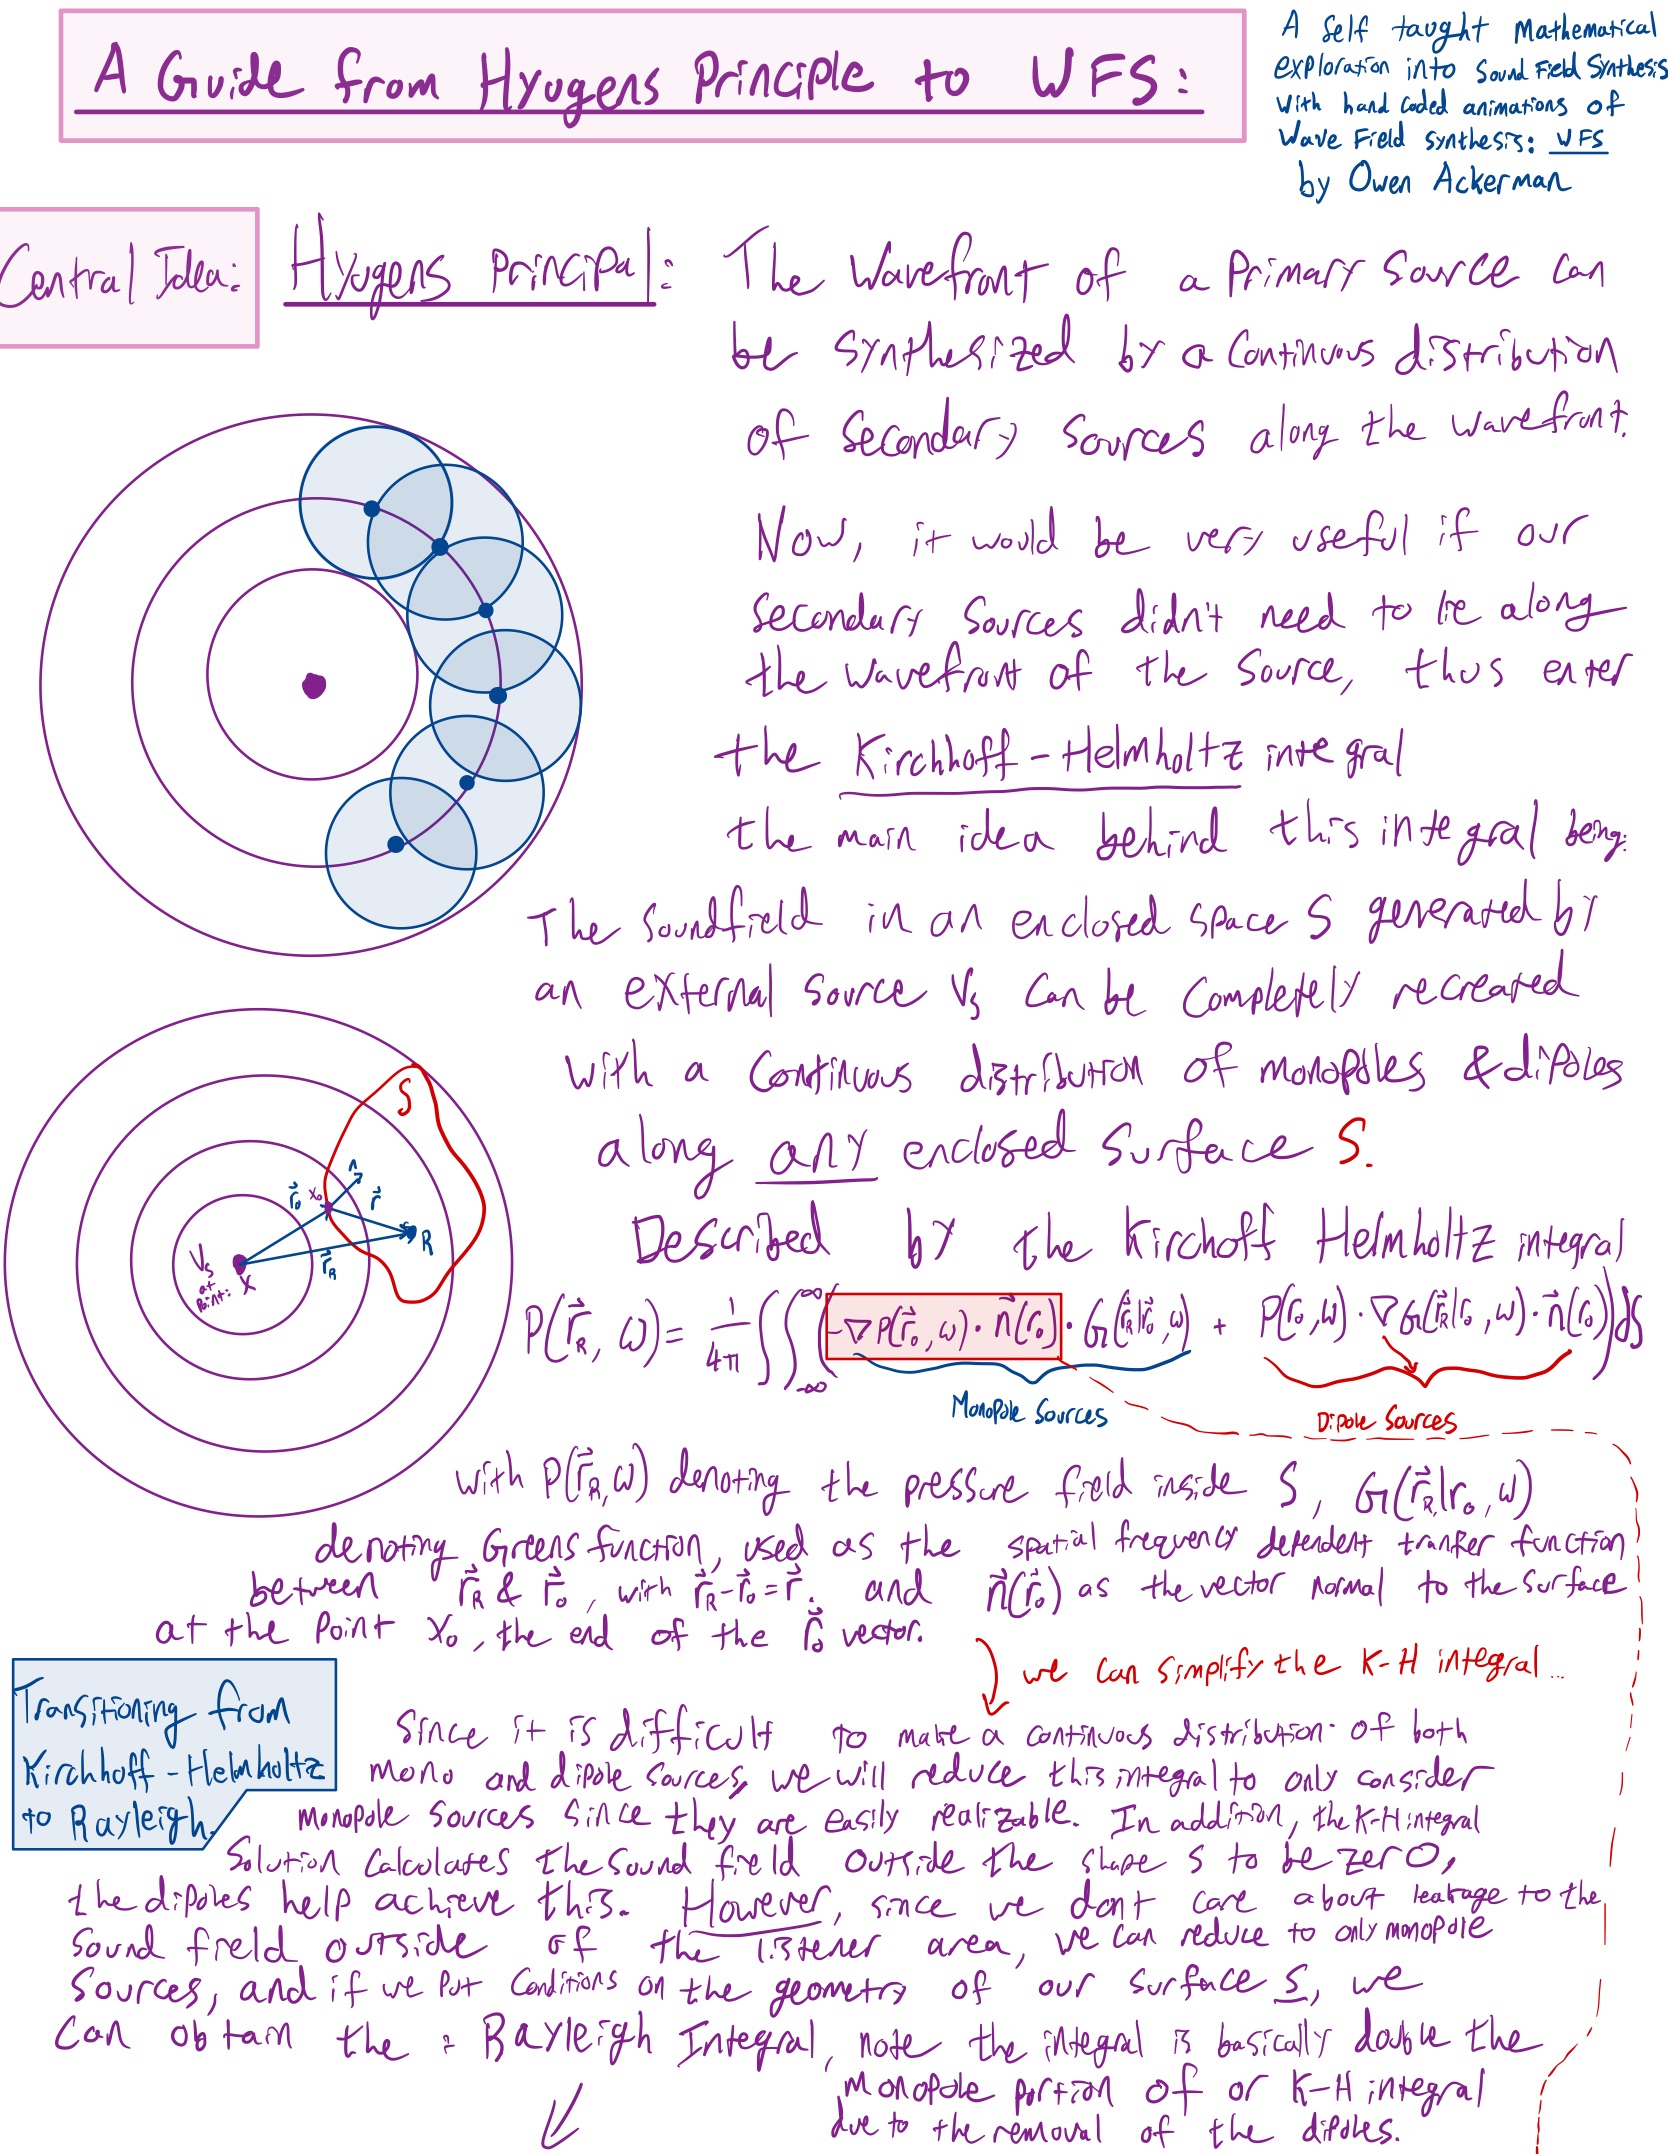 A Guide from Hyugens Principle to WFS:
A Self taught Mathematical
exploration into Sound Field Synthesis
with hand coded animations of
Wave Field synthesis: WFS
by Owen Ackerman
Central Idea:
Hyugens principal: The Wavefront of a Primary Source can
be synthesized by a continuous distribution
of secondary sources along the wavefront.
Now, it would be very useful if our
secondary sources didn't need to lie along
the wavefront of the source, thus enter
the Kirchhoff-Helmholtz integral
the main idea behind this integral being:
The soundfield in an enclosed space S generated by
an external source Vs can be completely recreated
with a continuous distribution of monopoles & dipoles
along any enclosed surface S.
S
n
r⃗₀ x₀ r⃗
R
r⃗_R
Vs
at
Point: X
Described by the Kirchoff Helmholtz integral
P(r⃗_R, ω) = 1/4π ∫∫_{-∞}^{∞} (-∇P(r⃗₀, ω) · n⃗(r⃗₀) · G(r⃗_R|r⃗₀, ω) + P(r₀, ω) · ∇G(r⃗_R|r₀, ω) · n⃗(r⃗₀)) dS
Monopole Sources
Dipole Sources
with P(r⃗_R, ω) denoting the pressure field inside S, G(r⃗_R|r₀, ω)
denoting Greens function, used as the spatial frequency dependent tranfer function
between r⃗_R & r⃗₀, with r⃗_R - r⃗₀ = r⃗. and n⃗(r⃗₀) as the vector normal to the surface
at the point x₀, the end of the r⃗₀ vector.
we can simplify the K-H integral...
Transitioning from
Kirchhoff-Helmholtz
to Rayleigh.
Since it is difficult to make a continuous distribution of both
mono and dipole sources, we will reduce this integral to only consider
monopole sources since they are easily realizable. In addition, the K-H integral
solution calculates the sound field outside the shape S to be zero,
the dipoles help achieve this. However, since we dont care about leakage to the
sound field outside of the listener area, we can reduce to only monopole
sources, and if we put conditions on the geometry of our surface S, we
can obtain the : Rayleigh Integral, note the integral is basically double the
monopole portion of or K-H integral
due to the removal of the dipoles.